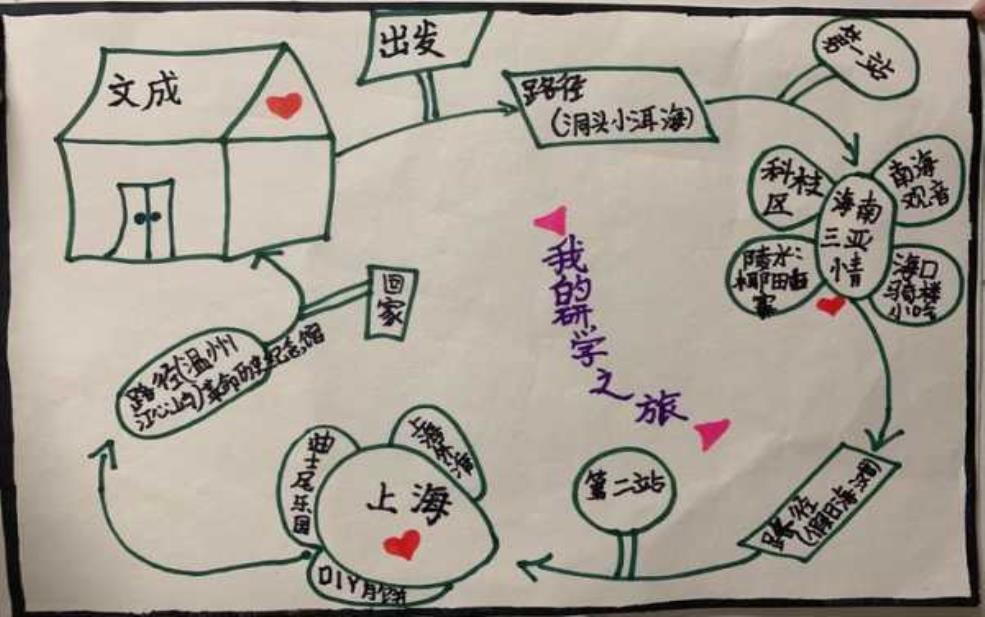 文成
出发
路径
(洞头小洱海)
第一站
科技
区
南海
观音
海南
三亚
情
陵水:
椰田古
寨
海口
骑楼
小吃
我的研学之旅
路径
(假日海滩)
第二站
上海
迪士尼乐园
DIY月饼
路径(温州
江心屿)革命历史纪念馆
回家